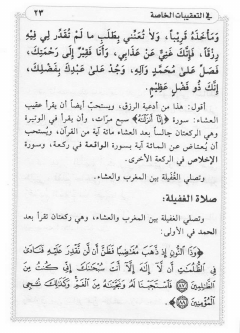 في التعقيبات الخاصة ٢٣
وَمَأْخَذَهُ قَرِيباً، وَلَا تُعَنِّنِي بِطَلَبِ ما لَمْ تُقَدِّرْ لِي فِيْهِ
رِزْقاً، فَإِنَّكَ غَنِيٌّ عَنْ عَذَابِي، وَأَنَا فَقِيرٌ إِلَى رَحْمَتِكَ،
فَصَلِّ عَلَى مُحَمَّدٍ وَآلِهِ، وَجُدْ عَلَى عَبْدِكَ بِفَضْلِكَ،
إِنَّكَ ذُو فَضْلٍ عَظِيْمٍ.
أقول: هذا من أدعية الرزق، ويستحبّ أيضاً أن يقرأ عقيب
العشاء: سورة ﴿إِنَّا أَنْزَلْنَاهُ﴾ سبع مرّات، وأن يقرأ في الوتيرة
وهي الركعتان جالساً بعد العشاء مائة آية من القرآن، ويُستحب
أن يُعتاض عن المائة آية بسورة الواقعة في ركعة، وسورة
الإخلاص في الركعة الأخرى.
وتصلي الغُفَيلة بين المغرب والعشاء.
صلاة الغفيلة:
وتصلي الغفيلة بين المغرب والعشاء، وهي ركعتان تقرأ بعد
الحمد في الأولى:
﴿وَذَا النُّونِ إِذ ذَّهَبَ مُغَاضِبًا فَظَنَّ أَن لَّن نَّقْدِرَ عَلَيْهِ فَنَادَىٰ
فِي الظُّلُمَاتِ أَن لَّا إِلَٰهَ إِلَّا أَنتَ سُبْحَانَكَ إِنِّي كُنتُ مِنَ
الظَّالِمِينَ ﴿٨٧﴾ فَاسْتَجَبْنَا لَهُ وَنَجَّيْنَاهُ مِنَ الْغَمِّ وَكَذَٰلِكَ نُنجِي
الْمُؤْمِنِينَ ﴿٨٨﴾﴾